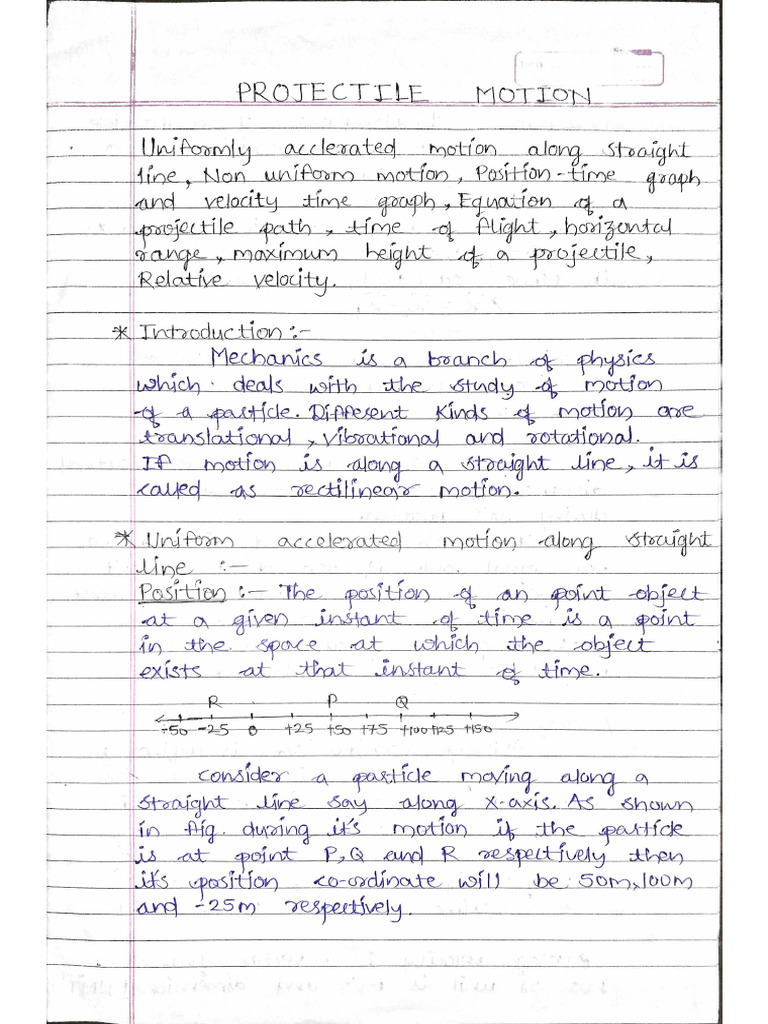 PROJECTILE MOTION
Uniformly acclerated motion along straight
line, Non uniform motion, Position-time graph
and velocity time graph, Equation of a
projectile path, time of flight, horizontal
range, maximum height of a projectile,
Relative velocity.
* Introduction :-
Mechanics is a branch of physics
which deals with the study of motion
of a particle. Different kinds of motion are
translational, vibrational and rotational.
If motion is along a straight line, it is
called as rectilinear motion.
* Uniform accelerated motion along straight
line :-
Position :- The position of an point object
at a given instant of time is a point
in the space at which the object
exists at that instant of time.
R P Q
-50 -25 0 +25 +50 +75 +100 +125 +150
Consider a particle moving along a
straight line say along X-axis. As shown
in fig. during it's motion if the particle
is at point P, Q and R respectively then
it's position co-ordinate will be 50m, 100m
and -25m respectively.